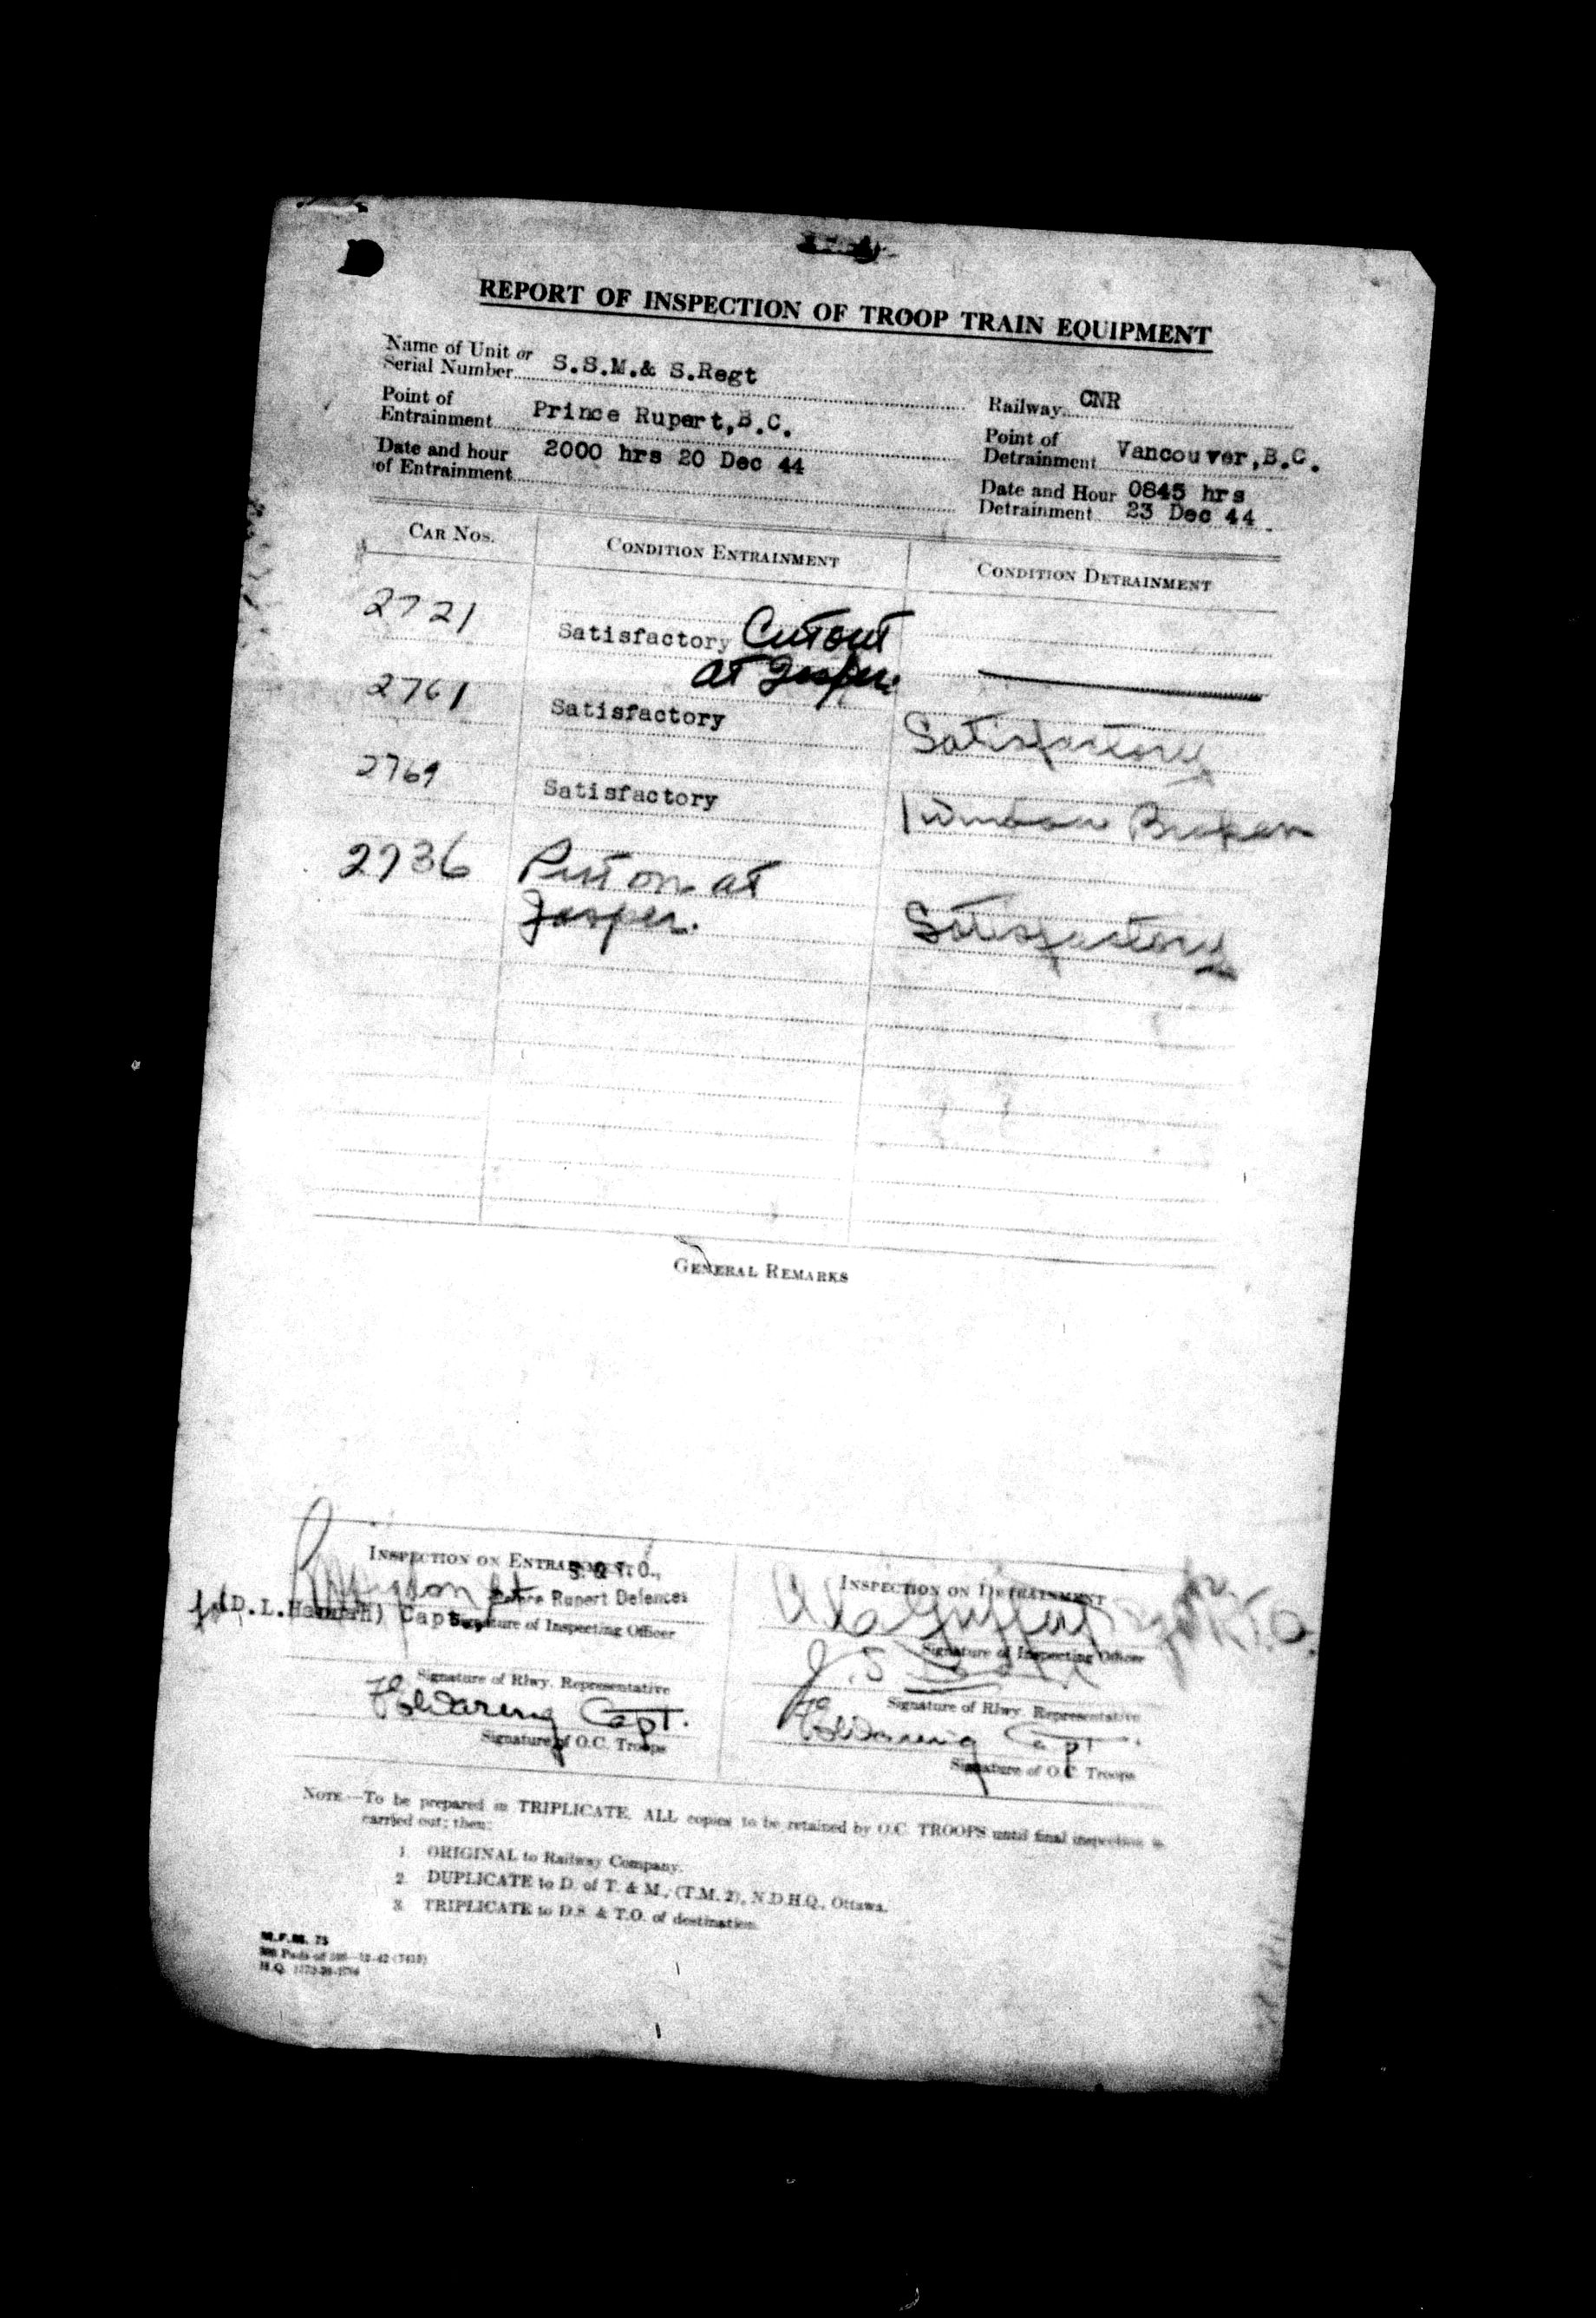 REPORT OF INSPECTION OF TROOP TRAIN EQUIPMENT
Name of Unit or
Serial Number S.S.M.& S.Regt
Railway CNR
Point of
Entrainment Prince Rupert,B.C.
Point of
Detrainment Vancouver,B.C.
Date and hour
of Entrainment 2000 hrs 20 Dec 44
Date and Hour 0845 hrs
Detrainment 23 Dec 44
CAR NOS. CONDITION ENTRAINMENT CONDITION DETRAINMENT
2721 Satisfactory Cut out
at Jasper.
2761 Satisfactory Satisfactory
2769 Satisfactory 1 window Broken
2736 Put on at
Jasper. Satisfactory
GENERAL REMARKS
INSPECTION ON ENTRAINMENT S. & T.O.,
Prince Rupert Defences
(D.L. Capt.
Signature of Inspecting Officer
Signature of Rlwy. Representative
Capt.
Signature of O.C. Troops
INSPECTION ON DETRAINMENT
R.T.O.
Signature of Inspecting Officer
J.S.
Signature of Rlwy. Representative
Capt.
Signature of O.C. Troops
NOTE—To be prepared in TRIPLICATE. ALL copies to be retained by O.C. TROOPS until final inspection is
carried out; then:
1. ORIGINAL to Railway Company.
2. DUPLICATE to D. of T. & M., (T.M. 2), N.D.H.Q., Ottawa.
3. TRIPLICATE to D.S. & T.O. of destination.
M.F.M. 75
H.Q.